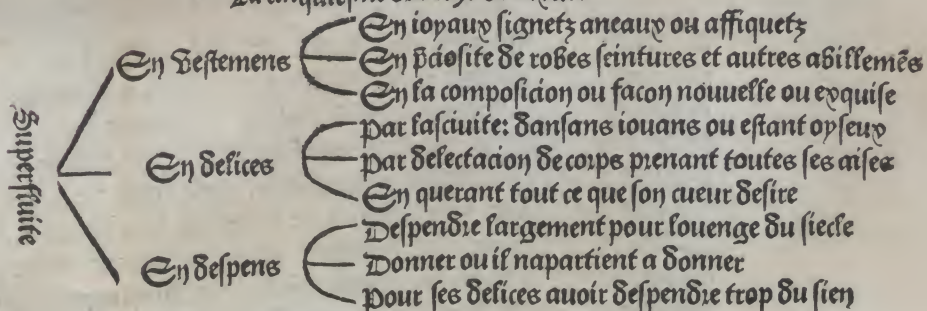 Superfluite
En vestemens
En ioyaux signetz aneaux ou affiquetz
En p̄ciosite de robes seintures et autres abillemēs
En la composicion ou facon nouuelle ou exquise
En delices
Par lasciuite: dansans iouans ou estant oyseux
Par delectacion de corps prenant toutes ses aises
En querant tout ce que son cueur desire
En despens
Despendre largement pour louenge du siecle
Donner ou il napartient a donner
Pour ses delices auoir despendre trop du sien